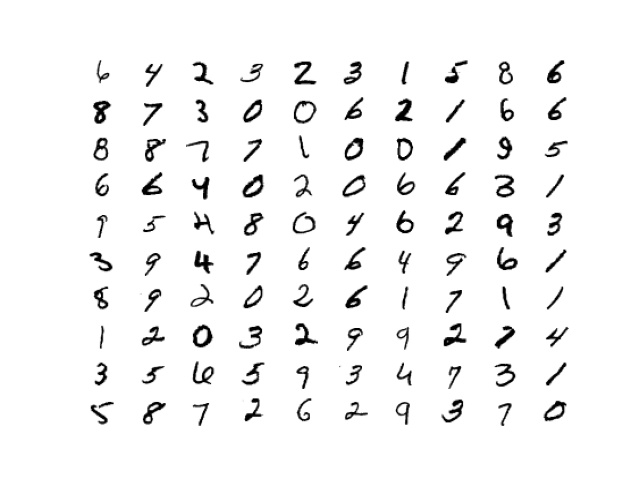 6 4 2 3 2 3 1 5 8 6
8 7 3 0 0 6 2 1 6 6
8 8 7 7 1 0 0 1 9 5
6 6 4 0 2 0 6 6 3 1
9 5 4 8 0 4 6 2 9 3
3 9 4 7 6 6 4 9 6 1
8 9 2 0 2 6 1 7 1 1
1 2 0 3 2 9 9 2 7 4
3 5 6 5 9 3 4 7 3 1
5 8 7 2 6 2 9 3 7 0